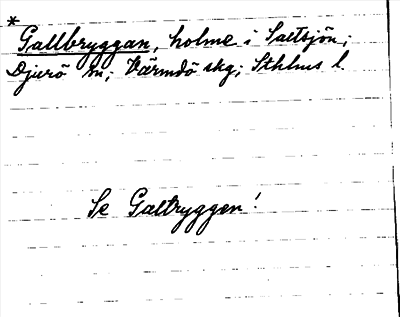 *
Gallbryggan, holme i Saltsjön;
Djurö sn; Värmdö skg; Sthlms l.
Se Galtryggen!